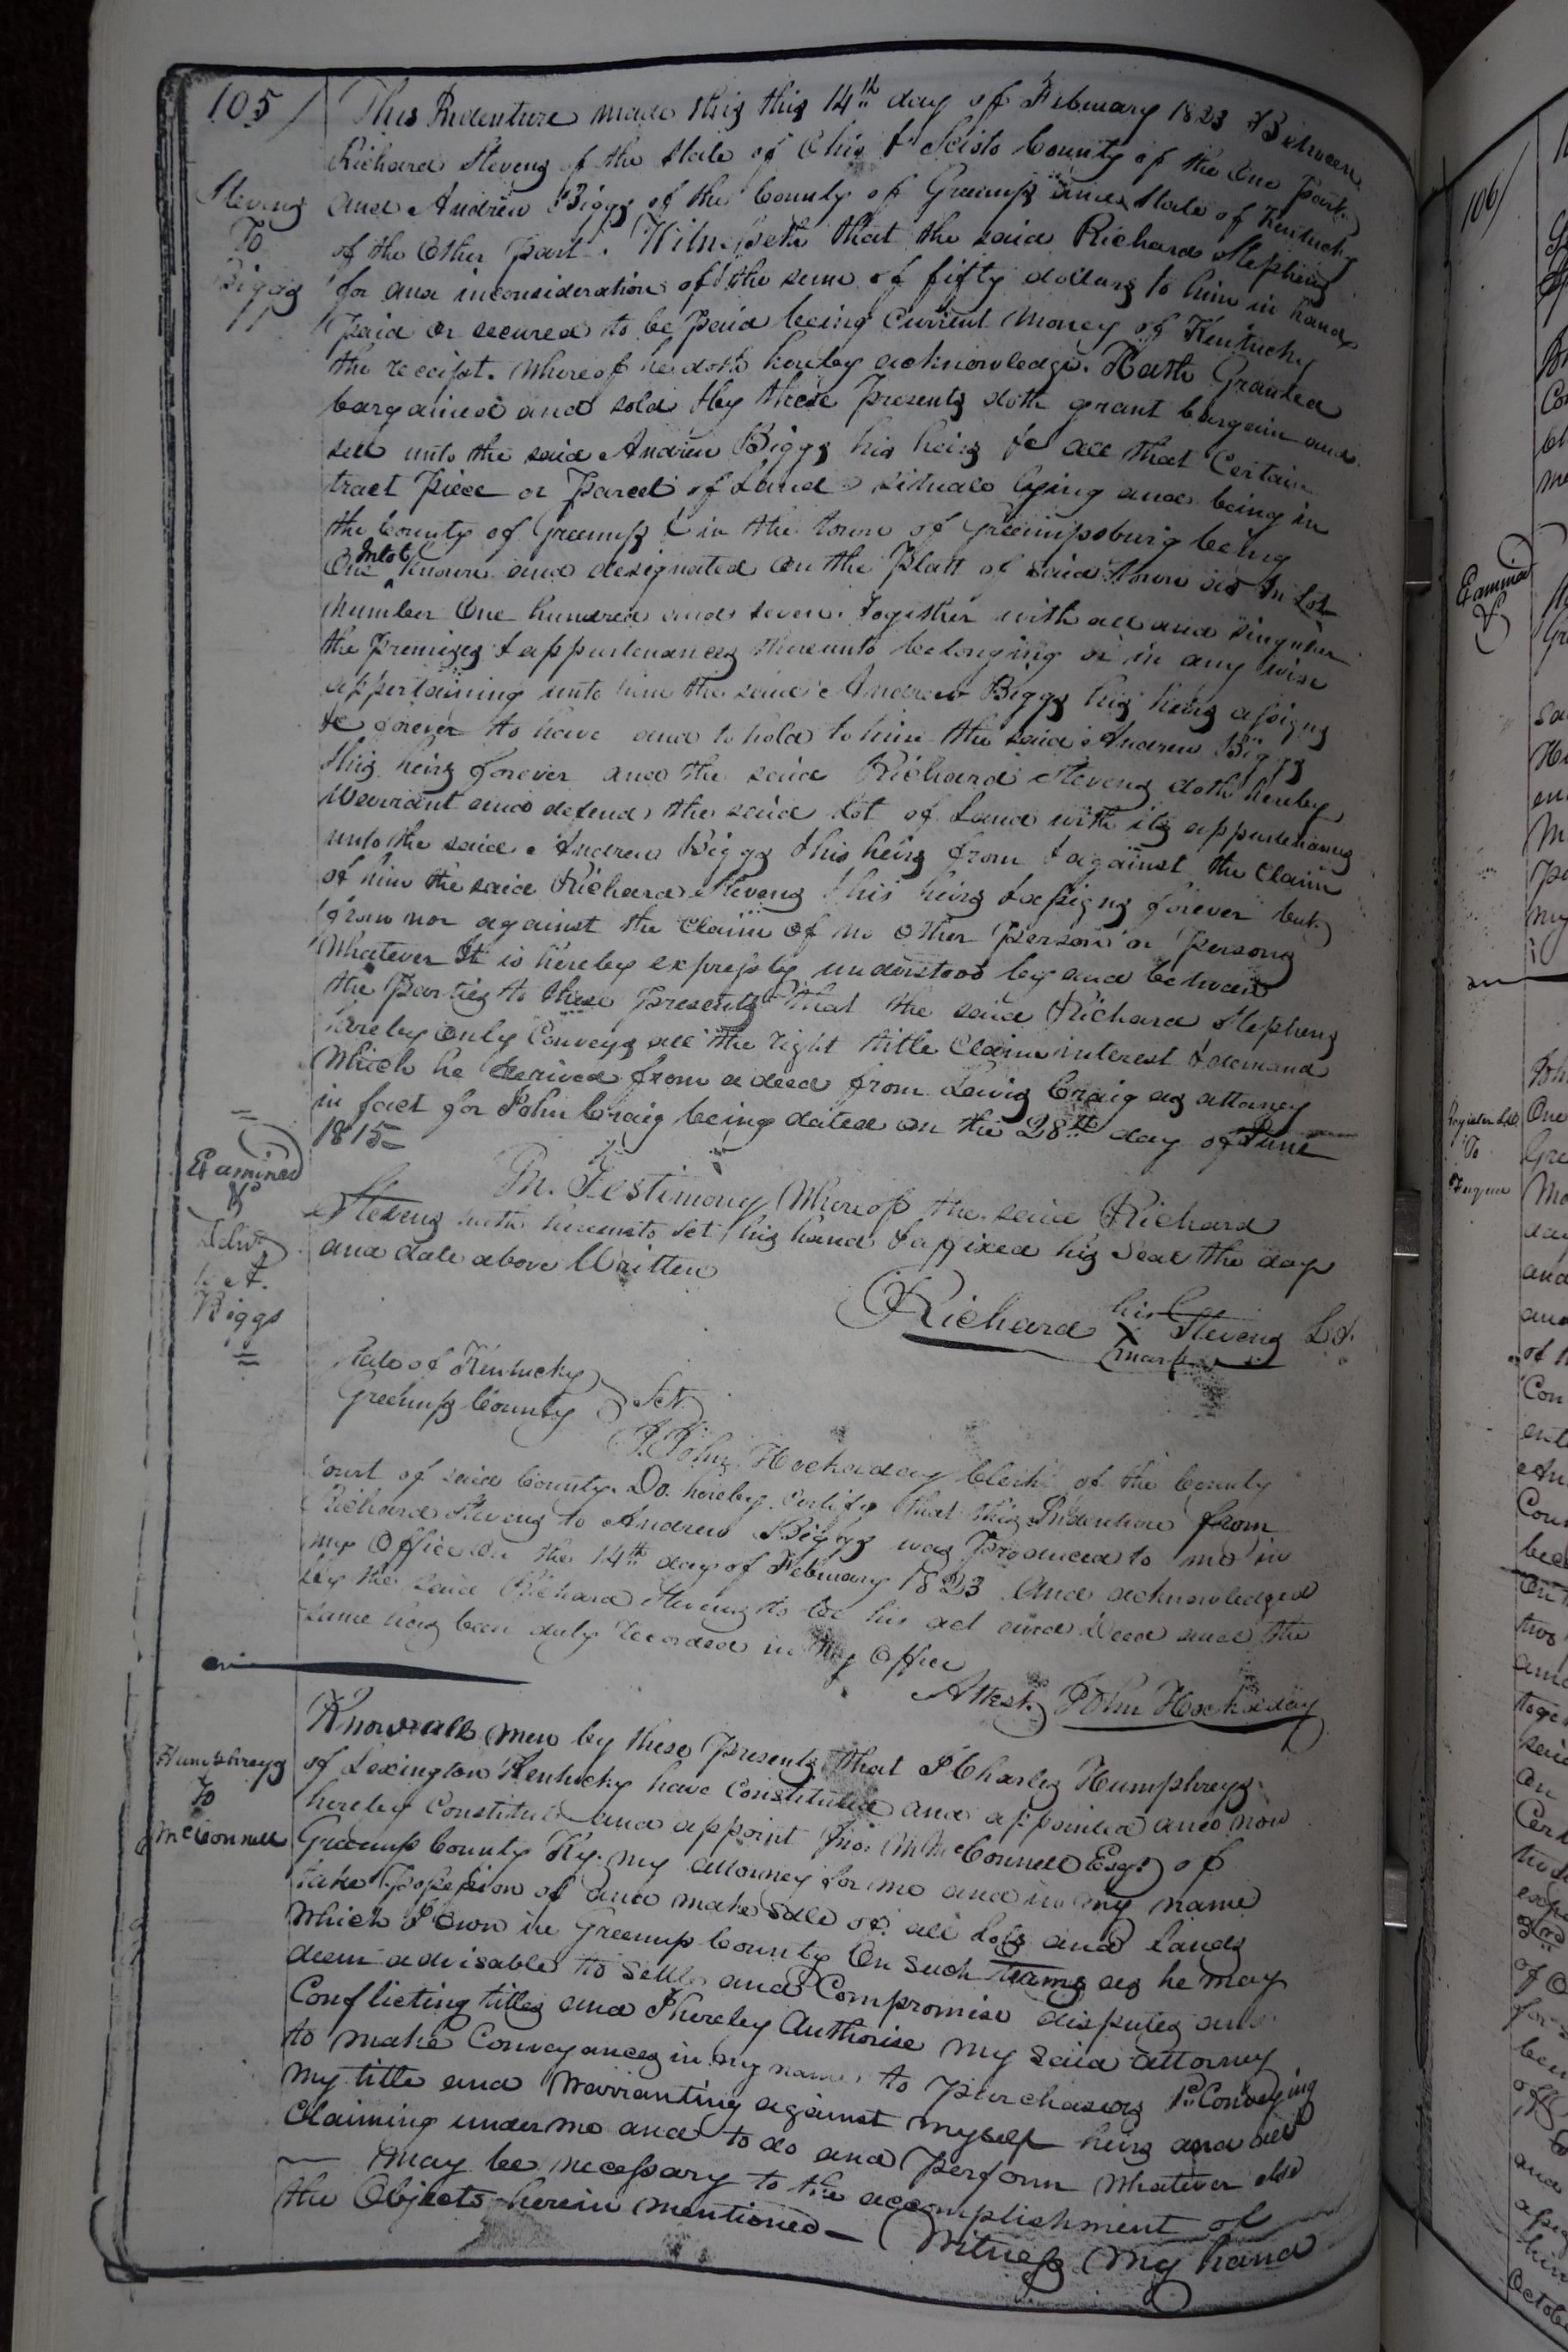 105/
Stevens
To
Biggs
This Indenture made this this 14th day of February 1823 Between
Richard Stevens of the State of Ohio & Scioto County of the One part
and Andrew Biggs of the County of Greenup and State of Kentucky
of the Other part. Witnesseth that the said Richard Stephens
for and inconsideration of the sum of fifty dollars to him in hand
paid or secured to be paid being Current Money of Kentucky
the receipt. Whereof he doth hereby acknowledge. Hath Granted
bargained and sold & by these Presents doth grant bargain and
sell unto the said Andrew Biggs his heirs &c all that Certain
tract Piece or Parcel of Land situate lying and being in
the County of Greenup & in the town of Greenupsburg being
One Inlot known and designated on the Platt of said town as In Lot
Number One hundred and seven. Together with all and singular
the Premises & appurtenances thereunto belonging or in any wise
appertaining unto him the said Andrew Biggs his heirs assigns
&c forever to have and to hold to him the said Andrew Biggs
& his heirs forever and the said Richard Stevens doth hereby
Warrant and defend the said Lot of Land with its appurtenances
unto the said Andrew Biggs & his heirs from & against the Claim
of him the said Richard Stevens & his heirs & assigns forever but
from nor against the Claim of no other Person or Persons
Whatever It is hereby expressly understood by and between
the Parties to these Presents that the said Richard Stephens
hereby only Conveys all the right title Claim interest & demand
Which he derived from a deed from Lewis Craig as attorney
in fact for John Craig being dated on the 28th day of June
1815
Examined
Deliv
to A.
Biggs
In Testimony Whereof the said Richard
Stevens hath hereunto set his hand & affixed his Seal the day
and date above Written
Richard his X mark Stevens L.S.
State of Kentucky
Greenup County Sct.
I. John Hockaday Clerk of the County
Court of said County. Do. hereby Certify that this Indenture from
Richard Stevens to Andrew Biggs was Produced to me in
my Office on the 14th day of February 1823 And acknowledged
by the said Richard Stevens to be his act and Deed and the
same has been duly recorded in My Office
Attest. John Hockaday
Humphreys
To
McConnell
Know all men by these Presents that I Charles Humphreys
of Lexington Kentucky have Constituted and appointed and now
hereby Constitute and appoint Jno. M McConnell Esqr. of
Greenup County Ky. my attorney for me and in my name
take Possession of and make sale of all lots and lands
Which I own in Greenup County On such terms as he may
deem advisable to settle and Compromise disputes and
Conflicting titles and I hereby Authorise my said attorney
to make Conveyances in my name to Purchasers &c Conveying
my title and Warranting against myself heirs and all
Claiming under me and to do and Perform Whatever else
may be necessary to the accomplishment of
the Objects herein mentioned Witness My hand
106/
Examined
Register &c
To